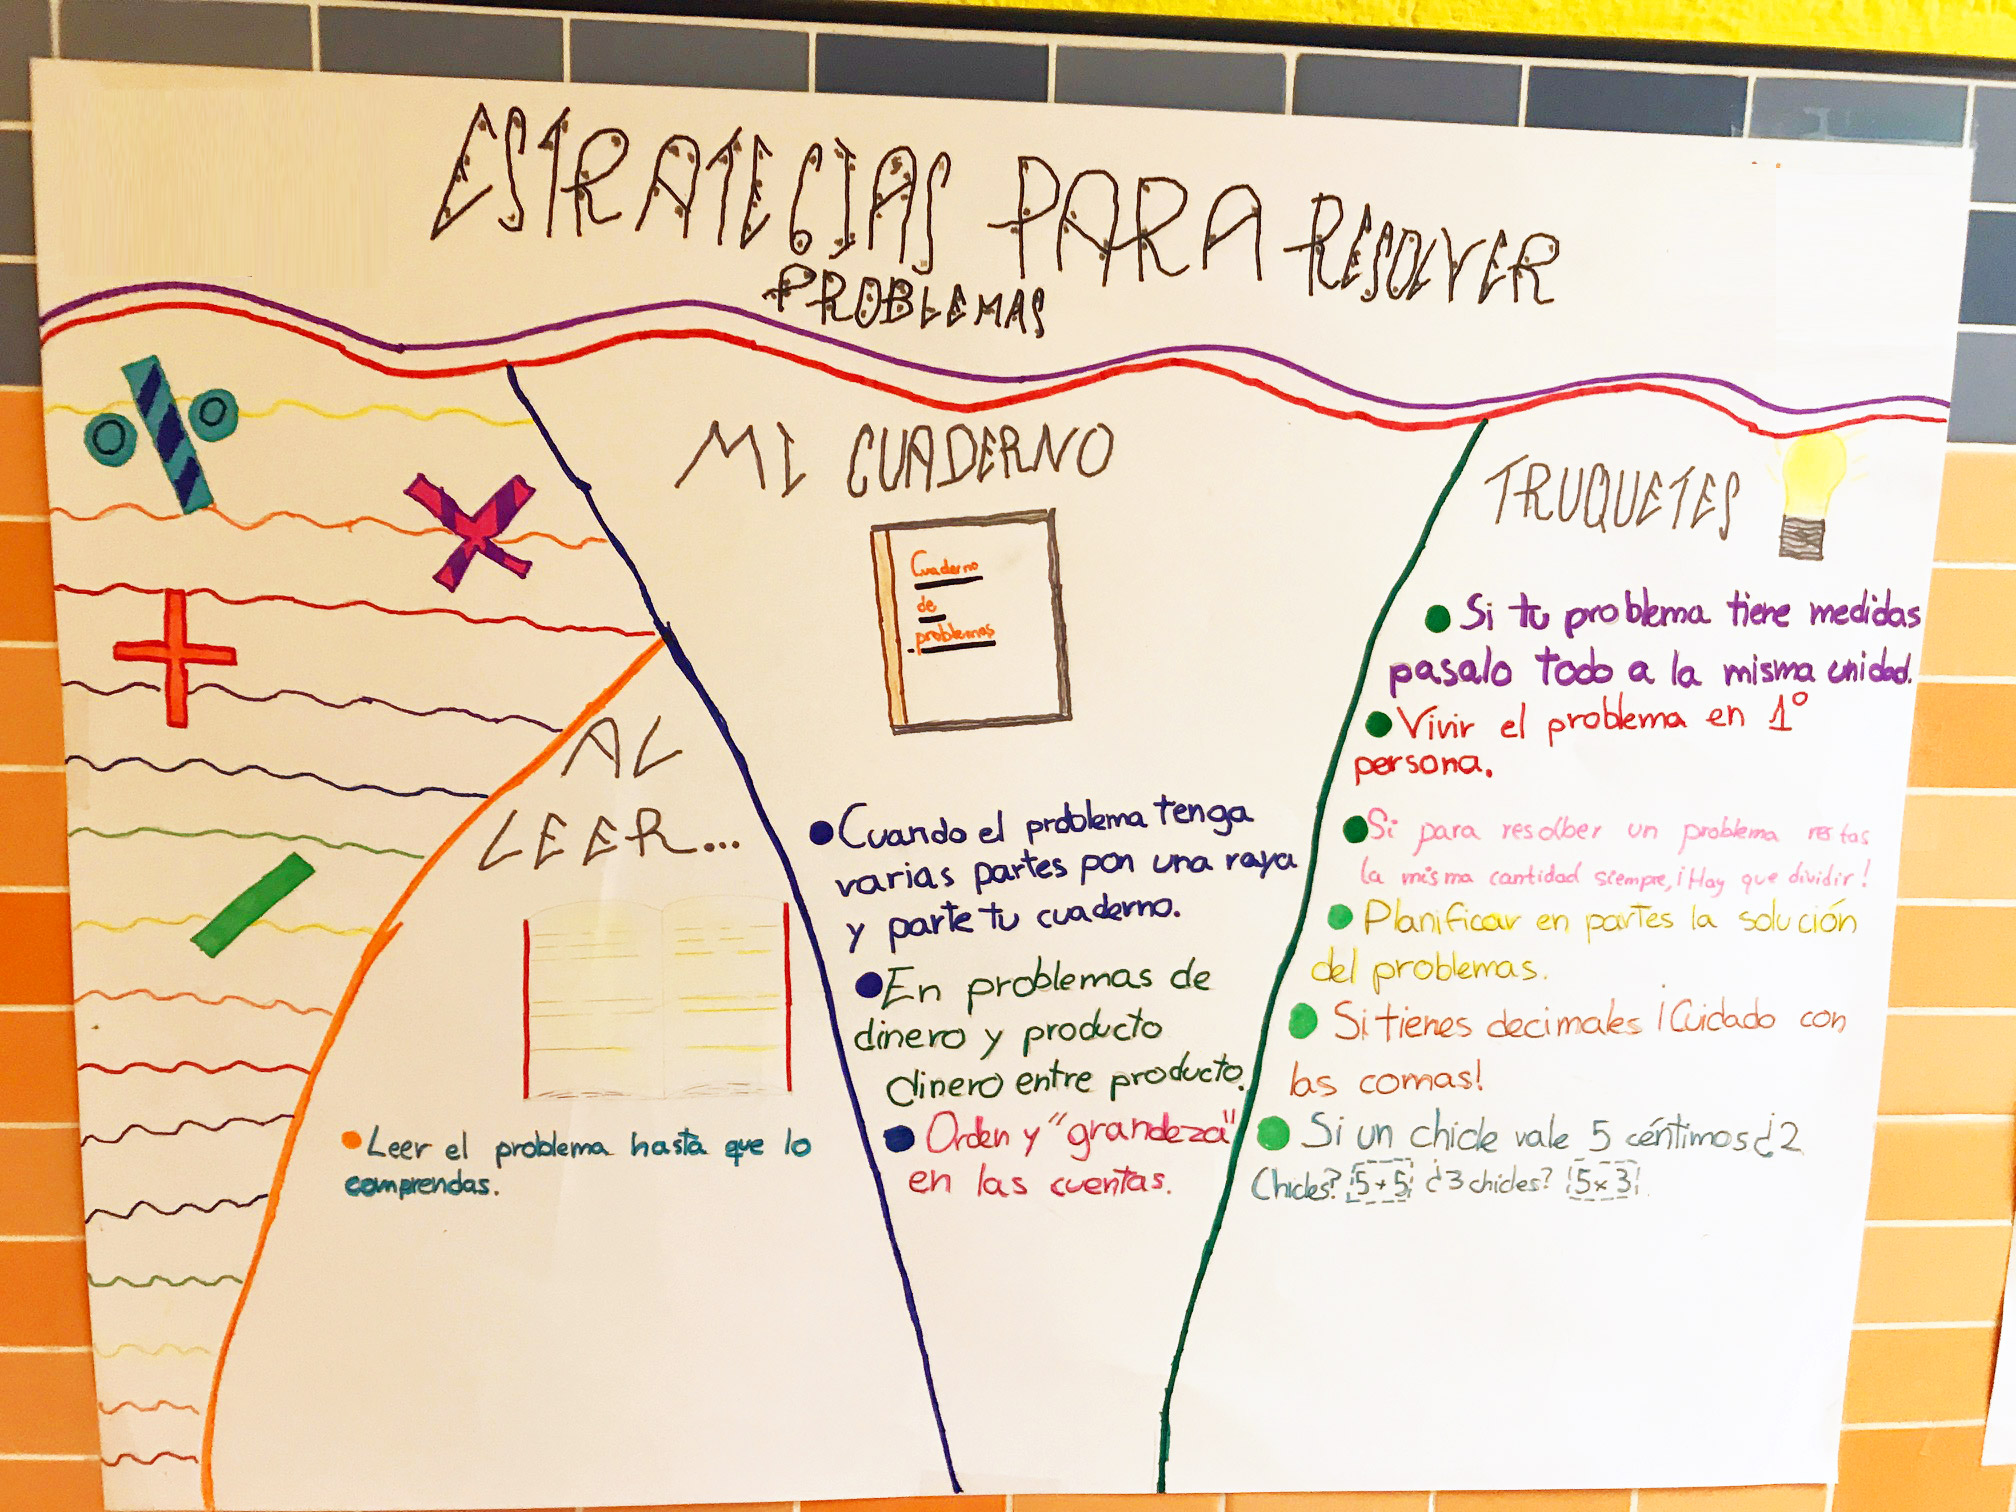 ESTRATEGIAS PARA RESOLVER
PROBLEMAS
AL
LEER...
Leer el problema hasta que lo
comprendas.
MI CUADERNO
Cuaderno
de
problemas
Cuando el problema tenga
varias partes pon una raya
y parte tu cuaderno.
En problemas de
dinero y producto
dinero entre producto.
Orden y "grandeza"
en las cuentas.
TRUQUETES
Si tu problema tiene medidas
pasalo todo a la misma unidad.
Vivir el problema en 1º
persona.
Si para resolber un problema restas
la misma cantidad siempre, ¡Hay que dividir!
Planificar en partes la solución
del problemas.
Si tienes decimales ¡Cuidado con
las comas!
Si un chicle vale 5 céntimos ¿2
Chicles? 5+5 ¿3 chicles? 5x3